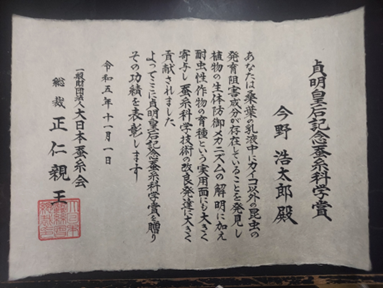 貞明皇后記念蚕糸科学賞
今野 浩太郎 殿
あなたは桑葉の乳液中にカイコ以外の昆虫の
発育阻害成分が存在していることを発見し
植物の生体防御メカニズムの解明に加え
耐虫性作物の育種という実用面にも大きく
寄与し蚕糸科学技術の改良発達に大きく
貢献されました
よってここに貞明皇后記念蚕糸科学賞を贈り
その功績を表彰します
令和五年十一月一日
一般財団法人大日本蚕糸会
総裁 正仁親王